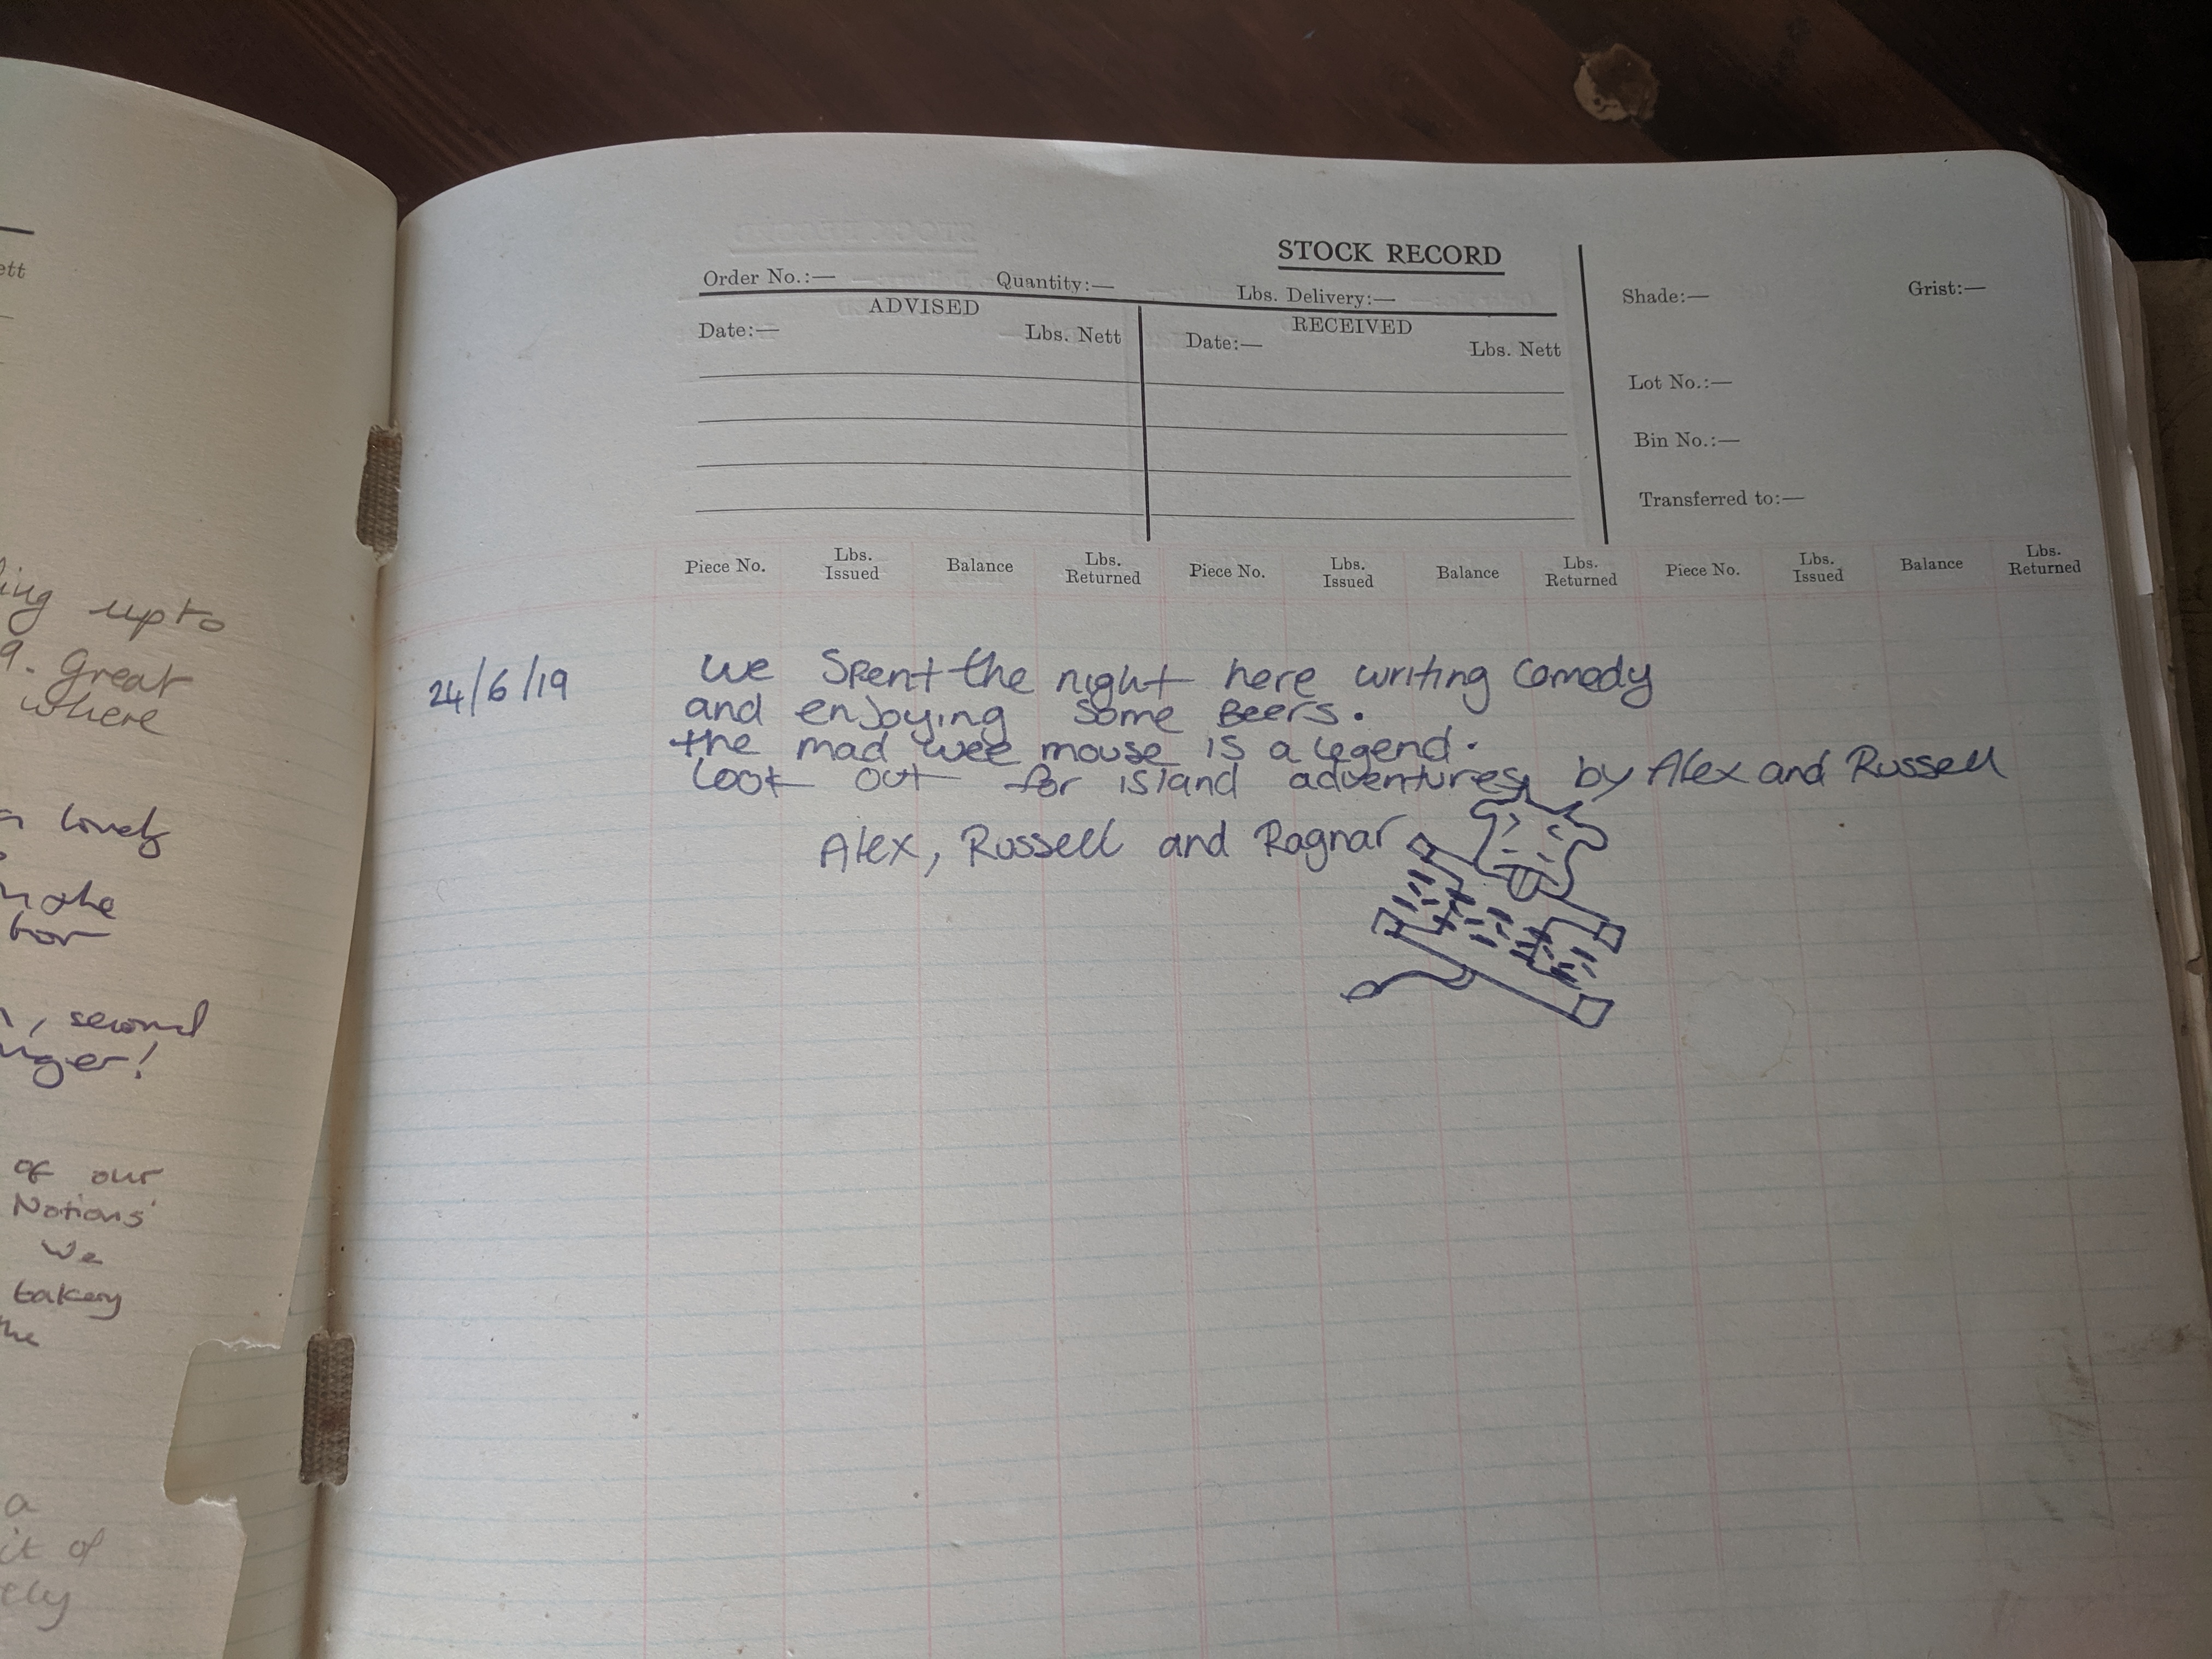 ett
ing upto
9. Great
where
lovely
make
for
, second
nger!
of our
Nations'
We
takery
the
a
it of
ely
STOCK RECORD
Order No.:— Quantity:— Lbs. Delivery:—
ADVISED RECEIVED
Date:— Lbs. Nett Date:— Lbs. Nett
Shade:— Grist:—
Lot No.:—
Bin No.:—
Transferred to:—
Piece No. Lbs. Issued Balance Lbs. Returned Piece No. Lbs. Issued Balance Lbs. Returned Piece No. Lbs. Issued Balance Lbs. Returned
24/6/19 we Spent the night here writing Comedy
and enjoying some Beers.
the mad wee mouse is a legend.
Look out for island adventures by Alex and Russell
Alex, Russell and Ragnar